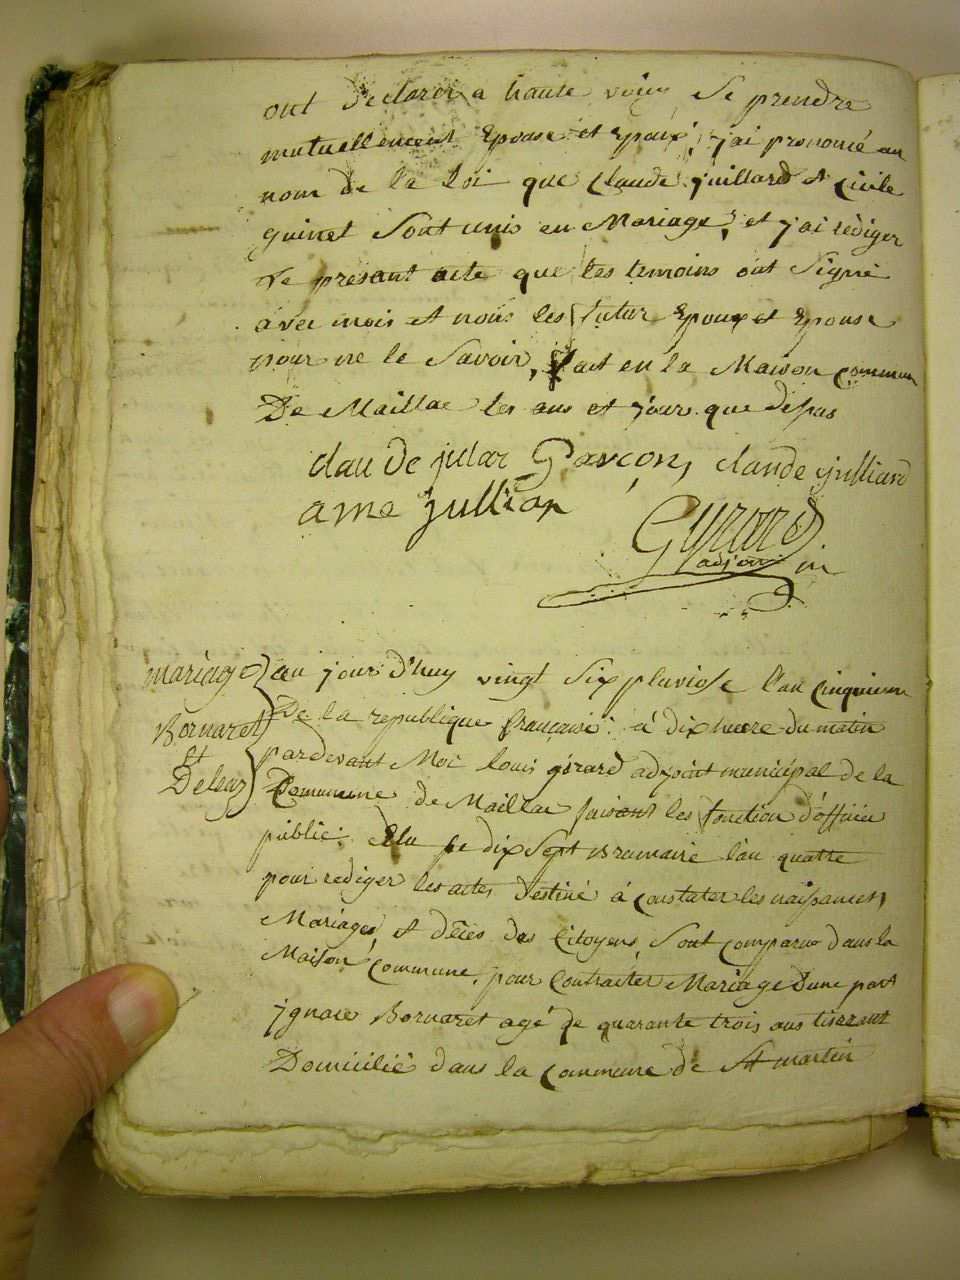 ont declarer a haute voix, Se prendre
mutuellement Epouse et Epoux; j'ai prononcé au
nom de la Loi que Claude juillard et Cicile
guinet Sont unis en Mariage, et j'ai rédiger
le présant acte que les temoins ont Signé
avec mois et nous les futur Epoux et Epouse
pour ne le Savoir, fait en la Maison commun
De Maillac les ans et jour que desus
claude julliard
ame jullian
Gyrard
adjoint
mariage
Bornaret
et
au jour d'huy vingt Six pluviose l'an Cinquieme
De la republique française à dix heure du matin
pardevant Moi louis gérard adjoint municipal de la
Commune de Maillac faisant les fonction d'officier
public Elu le dix Sept Brumaire l'an quatre
pour rediger les actes destiné à constater les naissances,
Mariages et décès des Citoyens, Sont comparus dans la
Maison Commune, pour Contracter Mariage d'une part
ignace Bornaret agé de quarante trois ans tiserant
Domicilié dans la commune de St martin